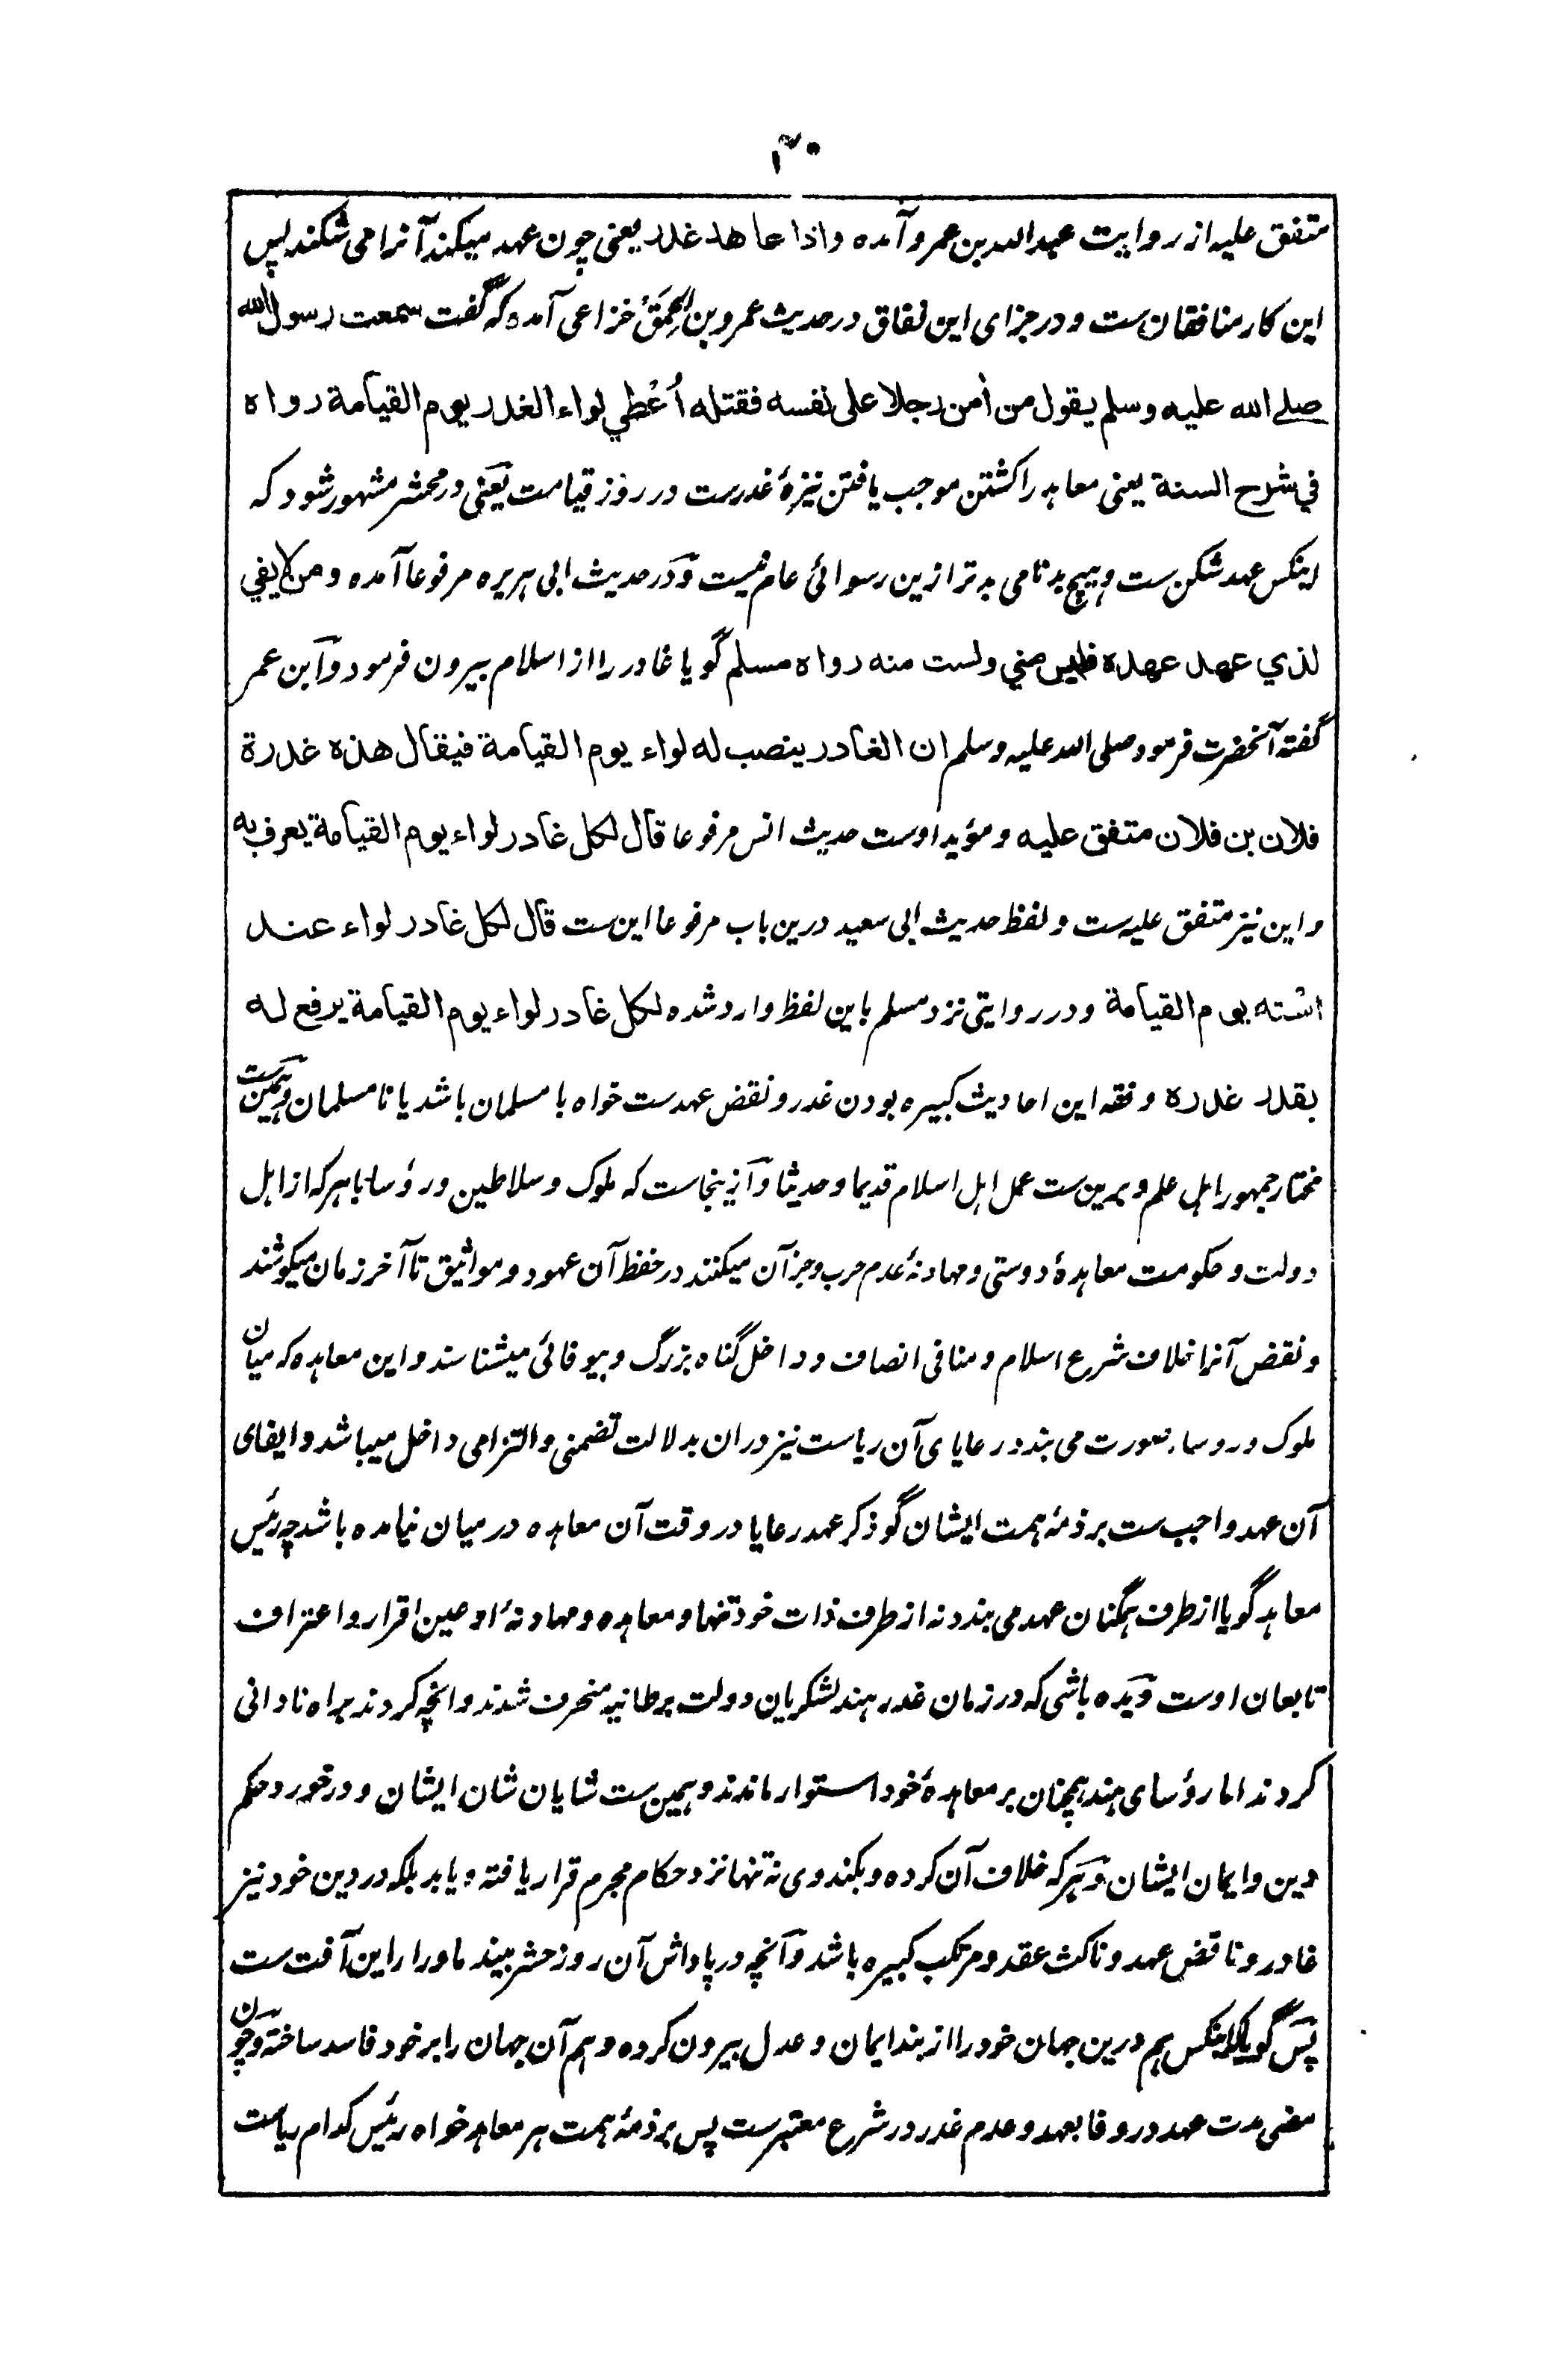 ۳۰
متفق علیه از روایت عبدالله بن عمرو آمده واذا عاهد غدر یعنی چون عهد میکند آنرا می شکند پس
این کار منافقان ست و در جزای این نفاق در حدیث عمرو بن الحَمِق خزاعی آمده که گفت سمعت رسول الله
صلے الله علیه وسلم یقول من أمن رجلا علی نفسه فقتله أُعْطي لواء الغدر یوم القیامة رواه
في شرح السنة یعنی معاهد را کشتن موجب یافتن نیزهٔ غدرست در روز قیامت یعنی در محشر مشهور شود که
اینکس عهد شکن ست و هیچ بدنامی بدتر ازین رسوائی عام نیست و در حدیث ابی هریره مرفوعا آمده ومن لا یفي
لذي عهد عهده فلیس مني ولست منه رواه مسلم گویا غادر را از اسلام بیرون فرمود و ابن عمر
گفته آنحضرت فرمود صلی الله علیه وسلم ان الغادر ینصب له لواء یوم القیامة فیقال هذه غدرة
فلان بن فلان متفق علیه و مؤید اوست حدیث انس مرفوعا قال لکل غادر لواء یوم القیامة یعرف به
و این نیز متفق علیه ست و لفظ حدیث ابی سعید درین باب مرفوعا این ست قال لکل غادر لواء عند
استه یوم القیامة و در روایتی نزد مسلم باین لفظ وارد شده لکل غادر لواء یوم القیامة یرفع له
بقدر غدره و فقه این احادیث کبیره بودن غدر و نقض عهدست خواه با مسلمان باشد یا نا مسلمان و همین ست
مختار جمهور اهل علم و برین ست عمل اهل اسلام قدیما و حدیثا و ازینجاست که ملوک و سلاطین و رؤسا با هر که از اهل
دولت و حکومت معاهدهٔ دوستی و مهادنهٔ عدم حرب و جز آن میکنند در حفظ آن عهود و مواثیق تا آخر زمان میکوشند
و نقض آنرا خلاف شرع اسلام و منافی انصاف و داخل گناه بزرگ و بیوفائی میشناسند و این معاهده که میان
ملوک و روساء صورت می بندد رعایای آن ریاست نیز دران بدلالت تضمنی و التزامی داخل میباشد و ایفای
آن عهد واجب ست بر ذمهٔ همت ایشان گو ذکر عهد رعایا در وقت آن معاهده در میان نیامده باشد چه رئیس
معاهد گویا از طرف همگنان عهد می بندد نه از طرف ذات خود تنها و معاهده و مهادنهٔ او عین اقرار و اعتراف
تابعان اوست و دیده باشی که در زمان غدر هند لشکریان دولت برطانیه منحرف شدند و انچه کردند براه نادانی
کردند اما رؤسای هند همچنان بر معاهدهٔ خود استوار ماندند و همین ست شایان شان ایشان و درخور حکم
دین و ایمان ایشان و هر که خلاف آن کرده و بکند وی نه تنها نزد حکام مجرم قرار یافته و یابد بلکه در دین خود نیز
غادر و ناقض عهد و ناکث عقد و مرتکب کبیره باشد و آنچه در پاداش آن روز حشر بیند ماورا راین آفت ست
پس گویا اینکس هم درین جهان خود را از بند ایمان و عدل بیرون کرده و هم آن جهان را بر خود فاسد ساخته و چون
مضی مدت عهد در وفا بعهد و عدم غدر در شرع معتبرست پس بر ذمهٔ همت هر معاهد خواه رئیس کدام ریاست